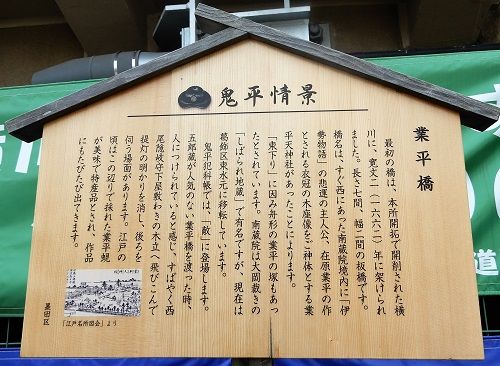 鬼平情景
業平橋
最初の橋は、本所開拓で開削された横
川に、寛文二(一六六二)年に架けられ
ました。長さ七間、幅二間の板橋です。
橋名は、すぐ西にあった南蔵院境内に「伊
勢物語」の悲運の主人公、在原業平の作
とされる衣冠の木座像をご神体とする業
平天神社があったことによります。
「東下り」に因み舟形の業平の塚もあっ
たとされています。南蔵院は大岡裁きの
「しばられ地蔵」で有名ですが、現在は
葛飾区東水元に移転しています。
鬼平犯科帳では、「敵」に登場します。
五郎蔵が人気のない業平橋を渡った時、
人につけられていると感じ、すばやく西
尾隠岐守下屋敷わきの木立へ飛びこんで
提灯の明かりを消し、後ろを
伺う場面があります。江戸の
頃はこの辺りで採れた業平蜆
が美味で特産品とされ、作品
にもたびたび出てきます。
「江戸名所図会」より
墨田区
道